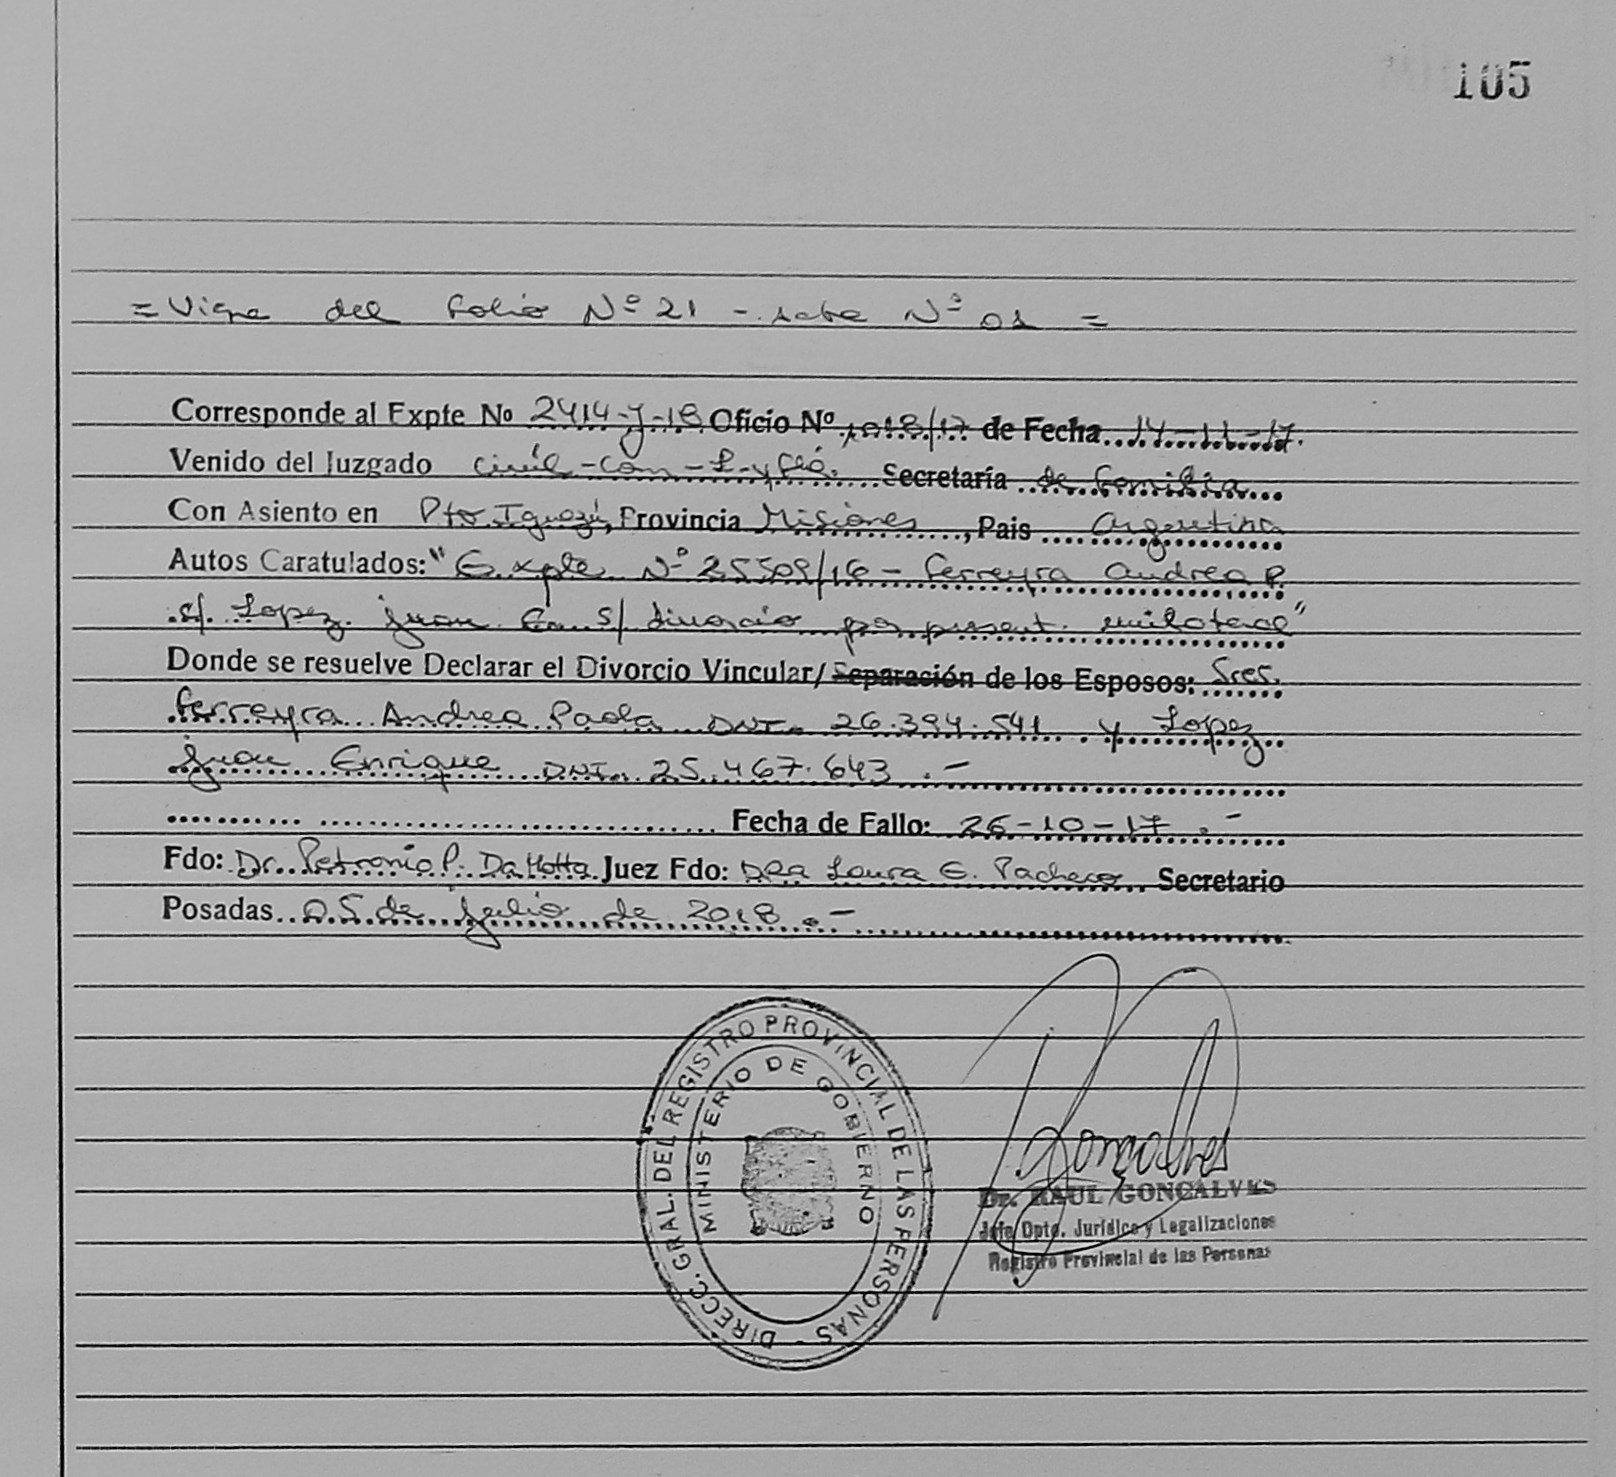 105
= Viene del folio Nº 21 - acta Nº 01 =
Corresponde al Expte Nº 2414-J-18 Oficio Nº 1018/17 de Fecha 14-11-17.
Venido del Juzgado Civil-Com-L-y flia. Secretaría de Familia
Con Asiento en Pto. Iguazú, Provincia Misiones, Pais Argentina
Autos Caratulados: "Expte Nº 25509/16 - Ferreyra Andrea P.
c/ Lopez Juan E. s/ divorcio por present. unilateral"
Donde se resuelve Declarar el Divorcio Vincular/Separación de los Esposos: Sres.
Ferreyra Andrea Paola DNI. 26.394.541 y Lopez
Juan Enrique DNI. 25.467.643 .-
Fecha de Fallo: 26-10-17 .-
Fdo: Dr. Petronio P. Da Motta Juez Fdo: Dra Laura G. Pacheco Secretario
Posadas 05 de julio de 2018.-
DIRECC. GRAL. DEL REGISTRO PROVINCIAL DE LAS PERSONAS -
MINISTERIO DE GOBIERNO
Goncalves
Dr. RAUL GONCALVES
Jefe Dpto. Jurídico y Legalizaciones
Registro Provincial de las Personas